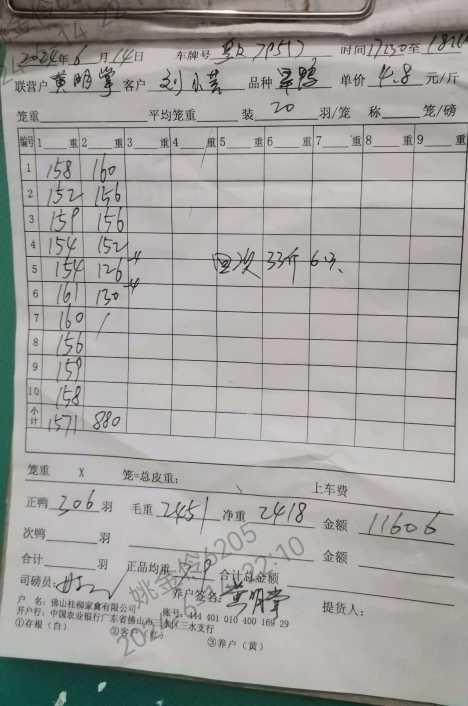 2024年6月14日 车牌号 时间17:30至18:20
联营户 黄明掌 客户 刘小芸 品种 旱鸭 单价 4.8 元/斤
笼重 平均笼重 装 20 羽/笼 称 笼/磅
编号 1 重 2 重 3 重 4 重 5 重 6 重 7 重 8 重 9 重
1 158 160
2 152 156
3 159 156
4 154 152
5 154 126 -4 回次 33斤 6只
6 161 130 -4
7 160 /
8 156
9 159
10 158
小计 1571 880
笼重 X 笼=总皮重: 上车费
正鸭 306 羽 毛重 2451 净重 2418 金额 11606
次鸭 羽 金额
合计 羽 正品均重 7.9 合计总金额
司磅员: 养户签名: 黄明掌 提货人:
户 名: 佛山桂柳家禽有限公司 账号: 444 401 010 400 169 29
开户行: 中国农业银行广东省佛山市三水区三水支行
①存根(白) ②客户 ③养户(黄)
姚金 6205